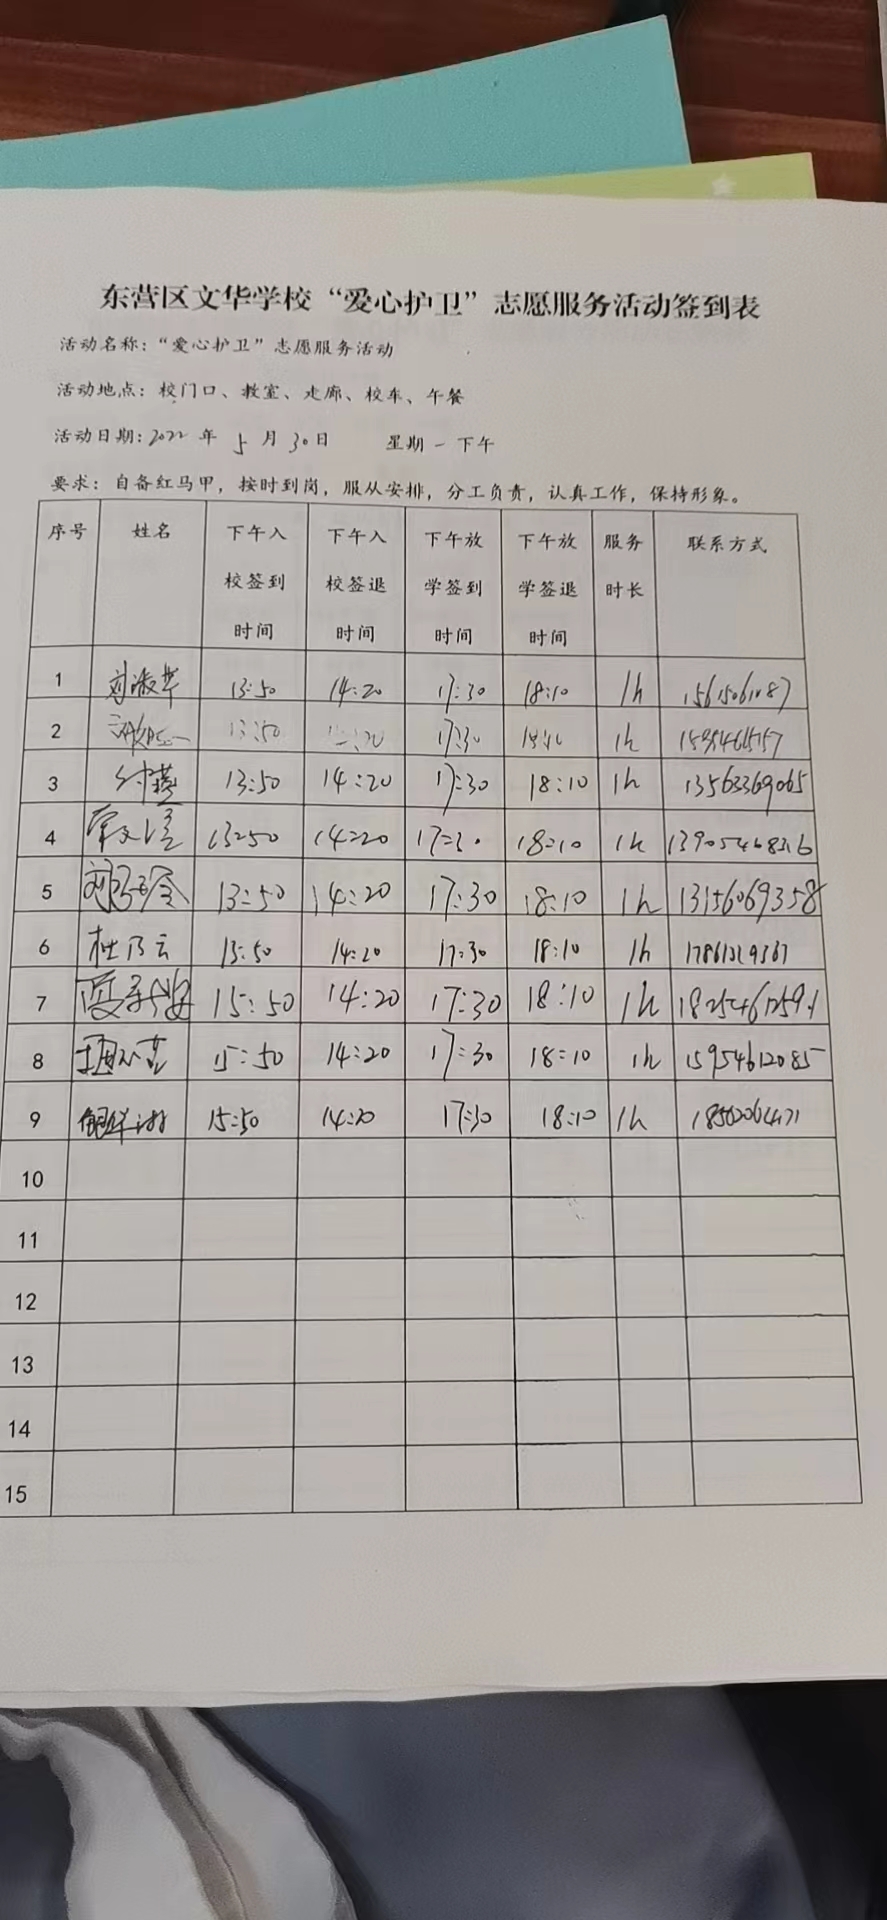 东营区文华学校“爱心护卫”志愿服务活动签到表
活动名称：“爱心护卫”志愿服务活动
活动地点：校门口、教室、走廊、校车、午餐
活动日期：2022 年 5 月 30日 星期一 下午
要求：自备红马甲，按时到岗，服从安排，分工负责，认真工作，保持形象。
序号 姓名 下午入校签到时间 下午入校签退时间 下午放学签到时间 下午放学签退时间 服务时长 联系方式
1 刘淑苹 13:50 14:20 17:30 18:10 1h
2 13:50 17:30 1h
3 13:50 14:20 17:30 18:10 1h 13563369065
4 13:50 14:20 17:30 18:10 1h
5 13:50 14:20 17:30 18:10 1h 13156069358
6 杜乃云 13:50 14:20 17:30 18:10 1h
7 15:50 14:20 17:30 18:10 1h
8 15:50 14:20 17:30 18:10 1h 15954612085
9 15:50 14:20 17:30 18:10 1h
10
11
12
13
14
15